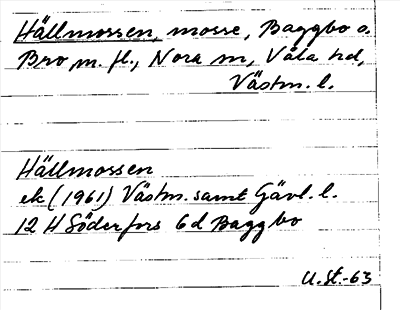 Hällmossen, mosse, Baggbo o.
Bro m. fl., Nora sn, Våla hd,
Västm. l.
Hällmossen
ek (1961) Västm. samt Gävl. l.
12 H Söderfors 6d Baggbo
U.St.-63